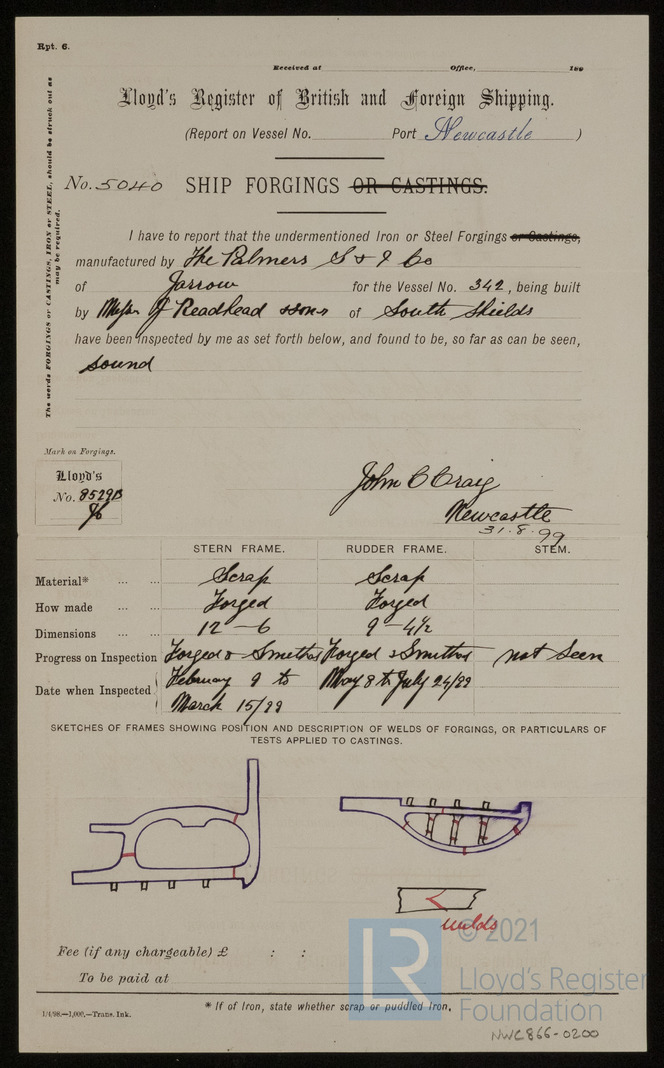 Rpt. 6.
Received at Office, 189
Lloyd's Register of British and Foreign Shipping.
(Report on Vessel No. Port Newcastle )
No. 5040 SHIP FORGINGS OR CASTINGS.
The words FORGINGS or CASTINGS, IRON or STEEL, should be struck out as
may be required.
I have to report that the undermentioned Iron or Steel Forgings or Castings,
manufactured by The Palmers S & I Co
of Jarrow for the Vessel No. 342, being built
by Messrs J Readhead & Sons of South Shields
have been inspected by me as set forth below, and found to be, so far as can be seen,
sound
Mark on Forgings.
Lloyd's
No. 8529B
John C Craig
Newcastle
31.8.99
STERN FRAME. RUDDER FRAME. STEM.
Material* ... ... Scrap Scrap
How made ... ... Forged Forged
Dimensions ... ... 12 - 6 9 - 4½
Progress on Inspection Forged & Smithed Forged & Smithed not seen
Date when Inspected February 9 to March 15/99 May 8 to July 24/99
SKETCHES OF FRAMES SHOWING POSITION AND DESCRIPTION OF WELDS OF FORGINGS, OR PARTICULARS OF
TESTS APPLIED TO CASTINGS.
welds
Fee (if any chargeable) £ : :
To be paid at
* If of Iron, state whether scrap or puddled Iron.
1/4/98.—1,000.—Trans. Ink.
LR
© 2021
Lloyd's Register
Foundation
NWC866-0200